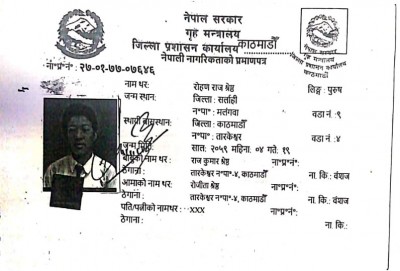 नेपाल सरकार
गृह मन्त्रालय
जिल्ला प्रशासन कार्यालय काठमाडौँ
नेपाली नागरिकताको प्रमाणपत्र
ना॰प्र॰नं॰: २७-०१-७७-०७६४६
नाम थर: रोहण राज श्रेष्ठ लिङ्ग: पुरुष
जन्म स्थान: जिल्ला: सर्लाही
न॰पा॰: मलंगवा वडा नं: ९
स्थायी बासस्थान: जिल्ला: काठमाडौँ
न॰पा॰: तारकेश्वर वडा नं: ४
जन्म मिति: साल: २०५९ महिना: ०४ गते: १९
बाबुको नाम थर: राज कुमार श्रेष्ठ ना॰प्र॰नं॰:
ठेगाना: तारकेश्वर न॰पा-४, काठमाडौँ ना. कि.: वंशज
आमाको नाम थर: रोजीता श्रेष्ठ ना॰प्र॰नं॰:
ठेगाना: तारकेश्वर न॰पा॰-४, काठमाडौँ ना. कि.: वंशज
पति/पत्नीको नामथर: xxx ना॰प्र॰नं॰:
ठेगाना: ना. कि.: